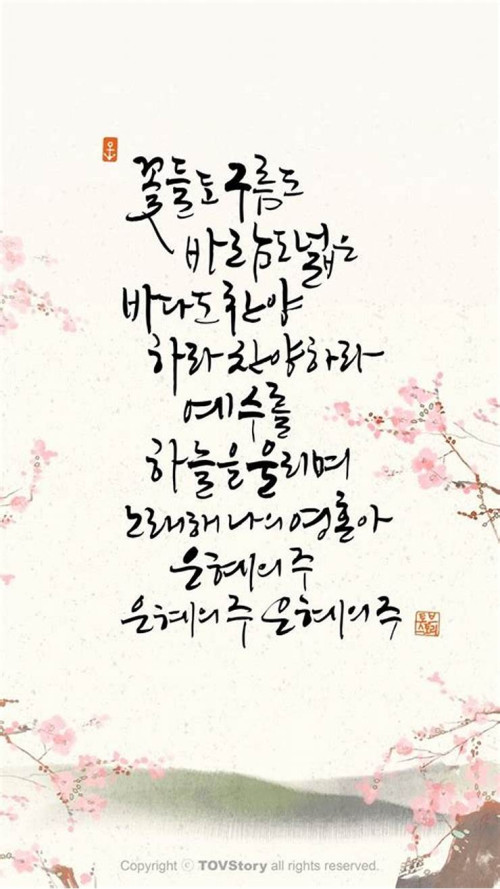 꽃들도 구름도
바람도 넓은
바다도 찬양
하라 찬양하라
예수를
하늘을 울리며
노래해 나의 영혼아
은혜의 주
은혜의 주 은혜의 주
Copyright ⓒ TOVStory all rights reserved.